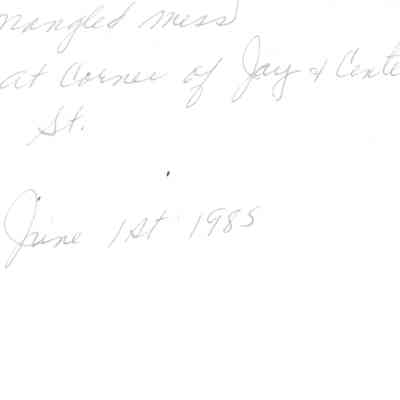 mangled mess
at Corner of Jay & Cente
St.
June 1st 1985